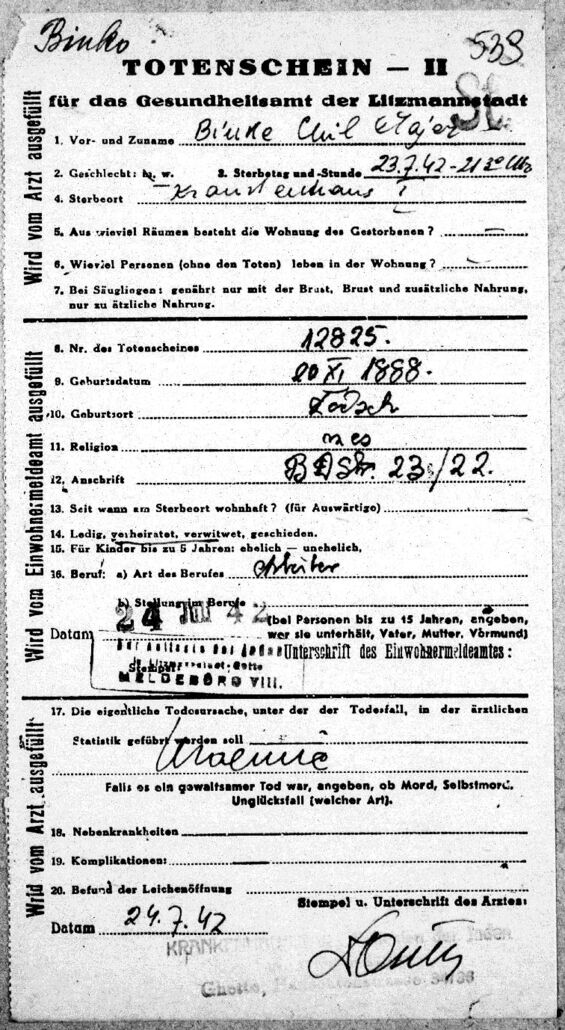 Binko
539
TOTENSCHEIN – II
für das Gesundheitsamt der Litzmannstadt
Wird vom Arzt ausgefüllt
1. Vor- und Zuname Binke Chil Majer
2. Geschlecht: m. w. 3. Sterbetag und -Stunde 23.7.42 - 21 30 Uhr
4. Sterbeort Krankenhaus I
5. Aus wieviel Räumen besteht die Wohnung des Gestorbenen? –
6. Wieviel Personen (ohne den Toten) leben in der Wohnung? –
7. Bei Säuglingen: genährt nur mit der Brust, Brust und zusätzliche Nahrung,
nur zu ätzliche Nahrung.
Wird vom Einwohnermeldeamt ausgefüllt
8. Nr. des Totenscheines 12825.
9. Geburtsdatum 20 XI 1888.
10. Geburtsort Lodsch
11. Religion mos
12. Anschrift Str. 23/22.
13. Seit wann am Sterbeort wohnhaft? (für Auswärtige)
14. Ledig, verheiratet, verwitwet, geschieden.
15. Für Kinder bis zu 5 Jahren: ehelich – unehelich,
16. Beruf: a) Art des Berufes Arbeiter
b) Stellung im Berufe
24 JUL 42
(bei Personen bis zu 15 Jahren, angeben,
Datum wer sie unterhält, Vater, Mutter, Vormund)
Der Aelteste der Juden
Unterschrift des Einwohnermeldeamtes:
Stempel
MELDEBÜRO VIII.
Wird vom Arzt ausgefüllt
17. Die eigentliche Todesursache, unter der der Todesfall, in der ärztlichen
Statistik geführt werden soll
Uraemie
Falls es ein gewaltsamer Tod war, angeben, ob Mord, Selbstmord,
Unglücksfall (welcher Art).
18. Nebenkrankheiten
19. Komplikationen:
20. Befund der Leichenöffnung
Stempel u. Unterschrift des Arztes:
Datum 24.7.42
der Juden
Ghetto,